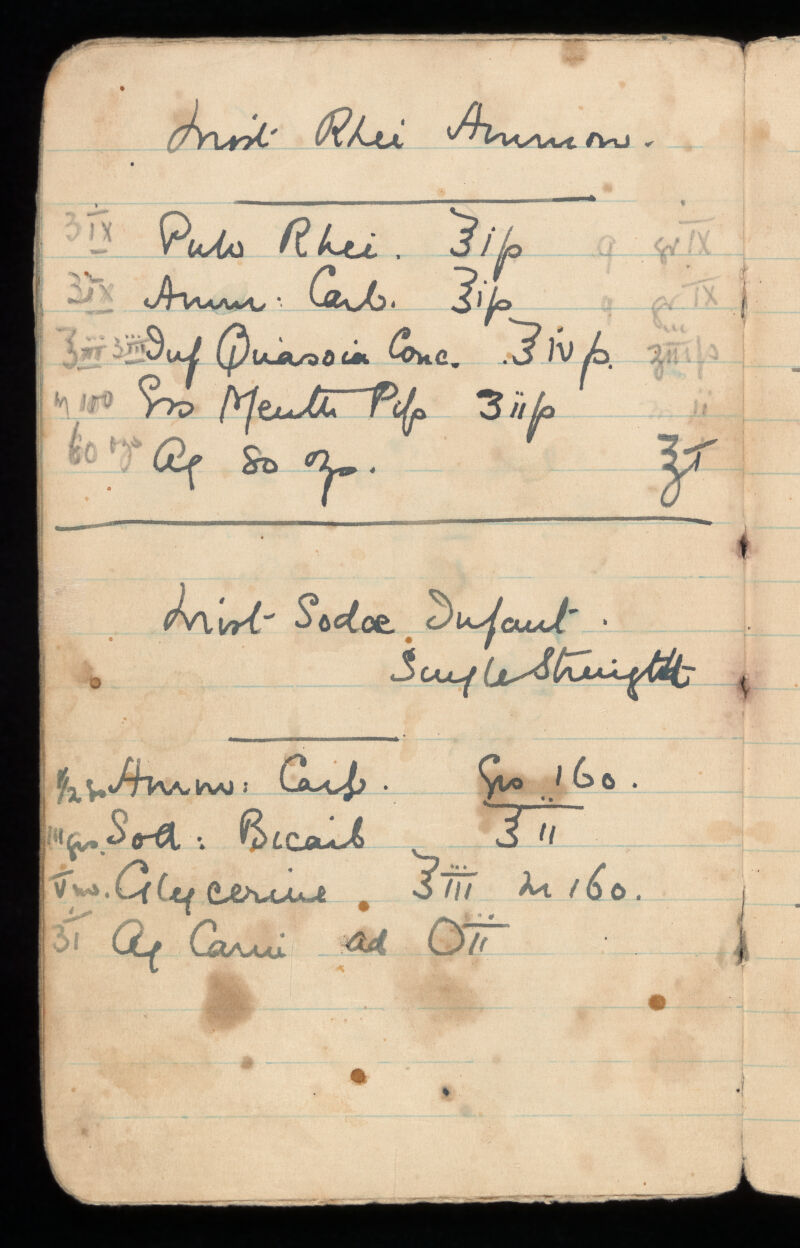 Mist Rhei Ammon.
ʒ IX Pulv Rhei. ℥iß 9 gr IX
ʒ IX Amm: Carb. ℥iß 9 gr IX
℥ III ʒ III Inf Quassia Conc. ℥ivß. ʒIIIß
m 100 Ess Menth Pip ʒiiß m ii
60 ozs Aq 80 ozs. ℥I
Mist Sodae Infant.
Single Strength
1/2 gr Amm: Carb. Grs 160.
III grs. Sod: Bicarb ℥ II
V m. Glycerine ℥ III m 160.
ʒI Aq Carui ad O II